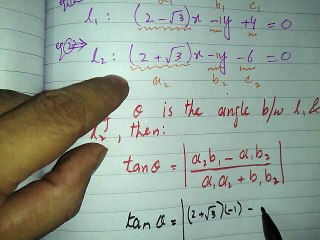 b₁
l₁: (2 - √3)x - 1y + 4 = 0
a₁ b₁ c₁
l₂: (2 + √3)x - 1y - 6 = 0
a₂ b₂ c₂
θ is the angle b/w l₁ &
l₂, then:
tanθ = | a₂b₁ - a₁b₂ / a₁a₂ + b₁b₂ |
tan θ = | (2+√3)(-1) -